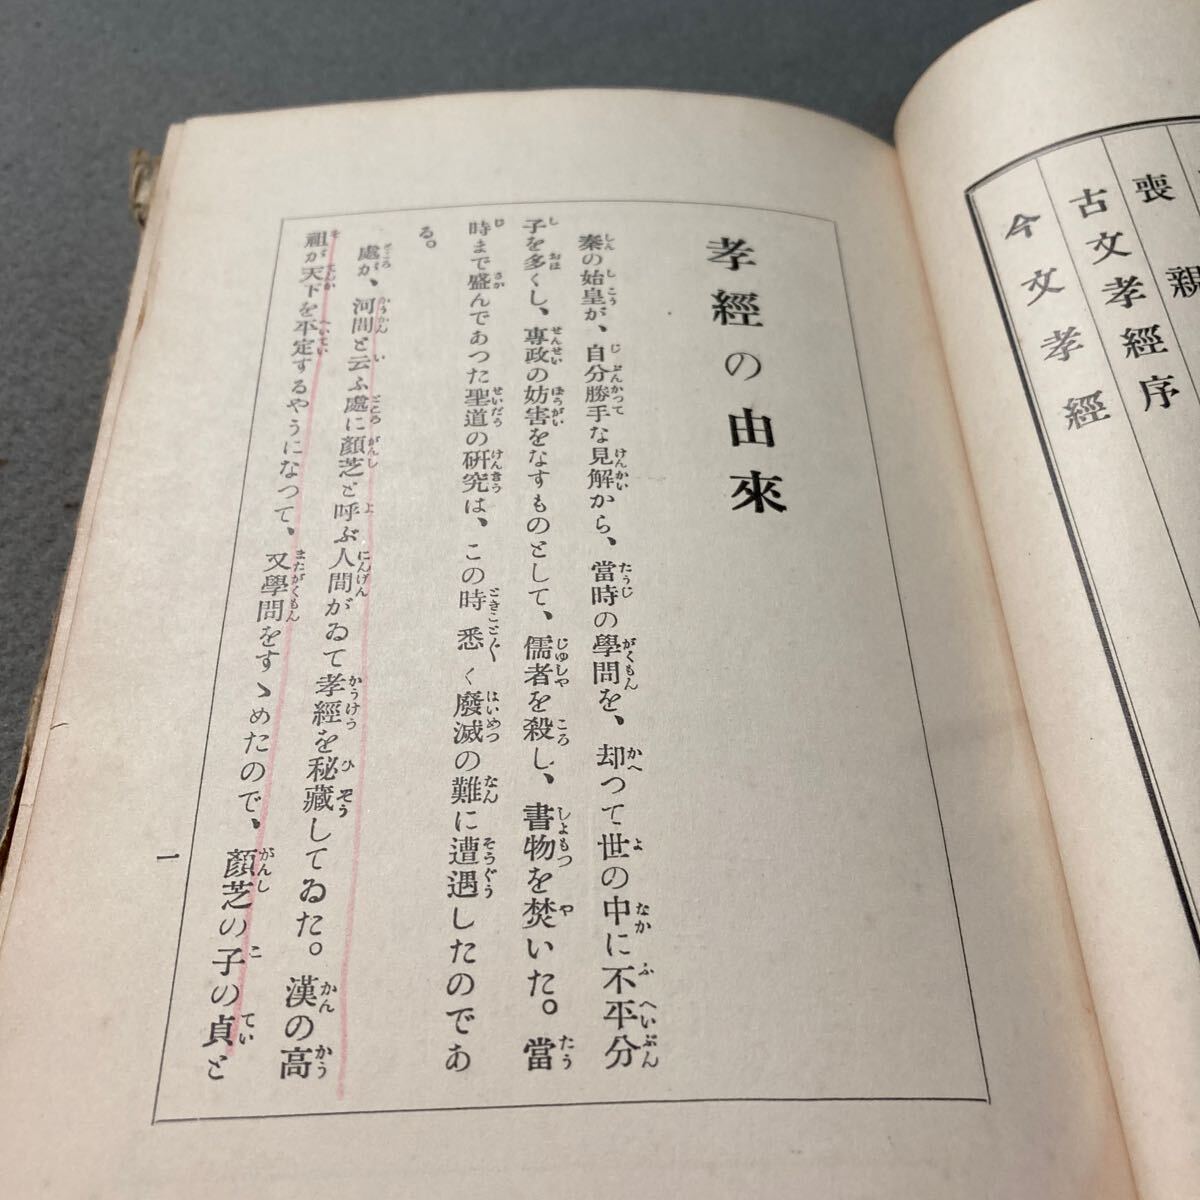 喪親
古文孝經序
今文孝經
孝經の由來
秦の始皇が、自分勝手な見解から、當時の學問を、却つて世の中に不平分
子を多くし、專政の妨害をなすものとして、儒者を殺し、書物を焚いた。當
時まで盛んであつた聖道の研究は、この時悉く廢滅の難に遭遇したのであ
る。
處が、河間と云ふ處に顏芝と呼ぶ人間がゐて孝經を秘藏してゐた。漢の高
祖が天下を平定するやうになつて、又學問をすゝめたので、顏芝の子の貞と
一